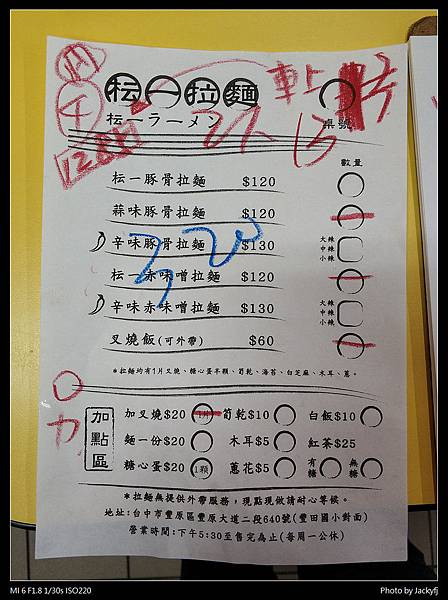 抎一拉麵
抎一ラーメン
桌號
數量
抎一豚骨拉麵 $120
蒜味豚骨拉麵 $120
辛味豚骨拉麵 $130 大辣 中辣 小辣
抎一赤味噌拉麵 $120
辛味赤味噌拉麵 $130 大辣 中辣 小辣
叉燒飯(可外帶) $60
*拉麵均有1片叉燒、糖心蛋半顆、筍乾、海苔、白芝麻、木耳、蔥。
加點區
加叉燒$20 1片 筍乾$10 白飯$10
麵一份$20 木耳$5 紅茶$25
糖心蛋$20 1顆 蔥花$5 有糖 無糖
*拉麵無提供外帶服務,現點現做請耐心等候。
地址:台中市豐原區豐原大道二段640號(豐田國小對面)
營業時間:下午5:30至售完為止(每周一公休)
MI 6 F1.8 1/30s ISO220
Photo by Jackyfj